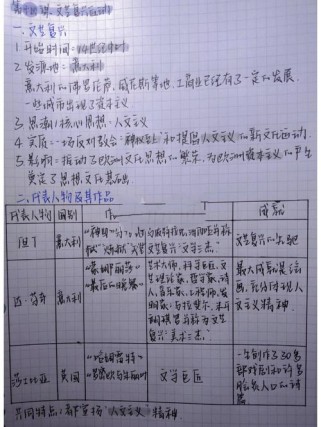 一. 文艺复兴
1. 开始时间: 14世纪中叶
2. 发源地: 意大利
意大利的佛罗伦萨、威尼斯等地, 工商业已经有了一定的发展,
一些城市出现了资本主义
3. 思潮/核心思想: 人文主义
4. 实质: 一场反对教会“神权”和提倡人文主义的新文化运动.
5. 影响: 推动了欧洲文化思想的繁荣, 为欧洲资本主义的产生
奠定了思想文化基础
二. 代表人物及其作品
代表人物 国别 作 成就
但丁 意大利 “神曲” 文艺复兴 文艺复兴的先驱
达·芬奇 意大利 “蒙娜丽莎” “最后的晚餐”
艺术大师, 科学巨匠, 文艺理论家, 哲学家, 诗人, 音乐家, 工程师, 发明家
最大成就是绘画, 充分体现人文主义精神.
莎士比亚 英国 “哈姆雷特” “罗密欧与朱丽叶” 文学巨匠
一生创作了30多部戏剧和许多脍炙人口的诗篇
共同特点: 都宣扬“人文主义”精神